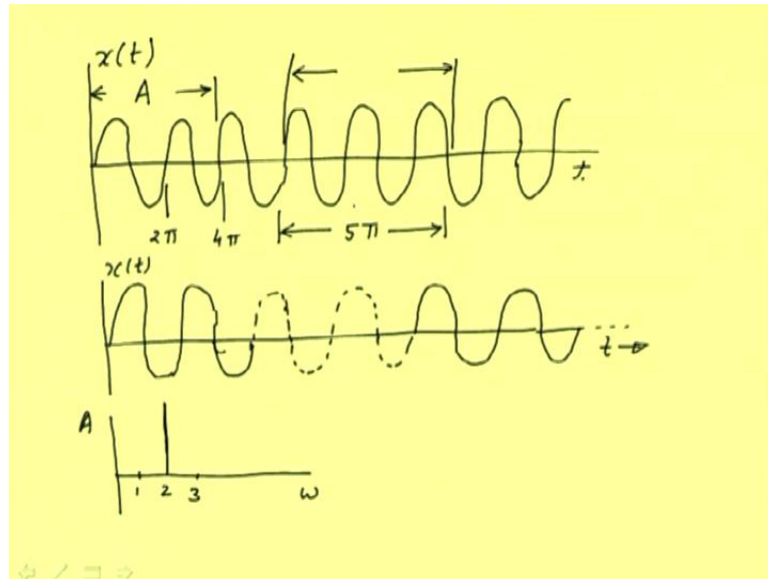 x(t)
A
t
2π 4π 5π
x(t)
t
A
1 2 3 ω